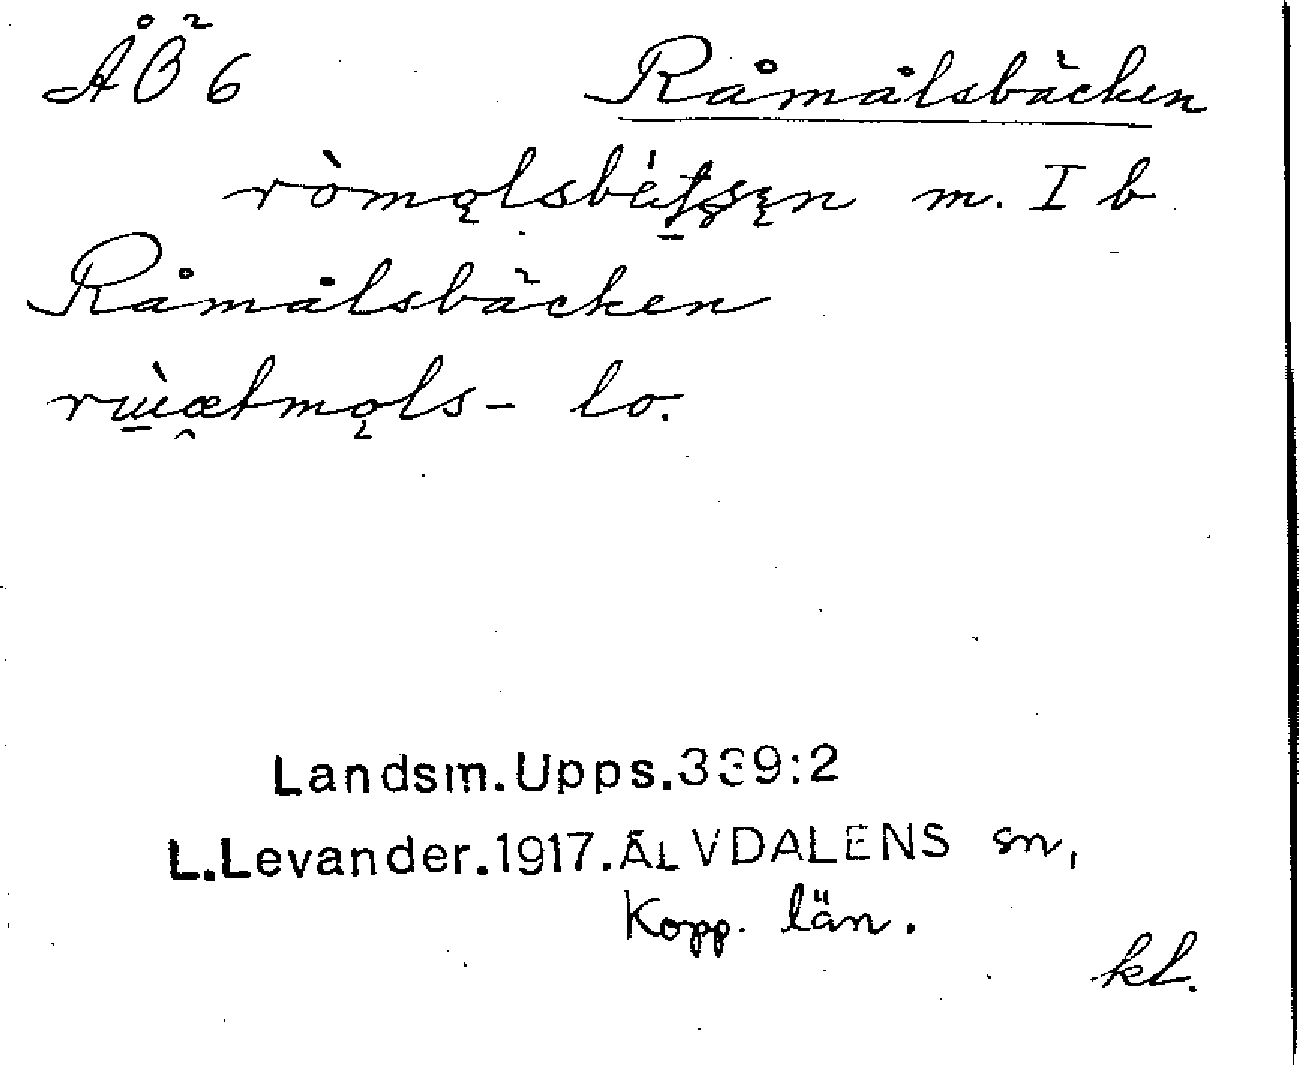 ÅÖ 6 Råmålsbäcken
ròmo̢lsbèt̠s̢e̢n m. I b
Råmålsbäcken
rɯ̠̀æ̭tmo̢ls- lo.
Landsm.Upps.339:2
L.Levander.1917.ÄLVDALENS sn,
Kopp. län.
kL.